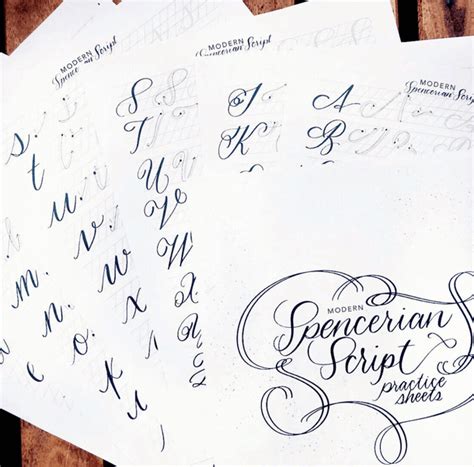 MODERN
Spencerian Script
MODERN
Spencerian Script
s
t
u.
v.
w
x
m.
n.
o.
S
T
U
V
W
X
J
K
A
B
MODERN
Spencerian
Script
practice
sheets